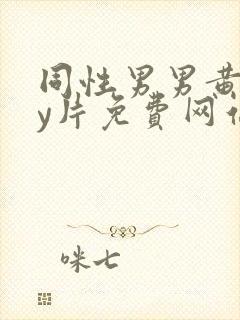 同性男男黄
y片免费网
咪七